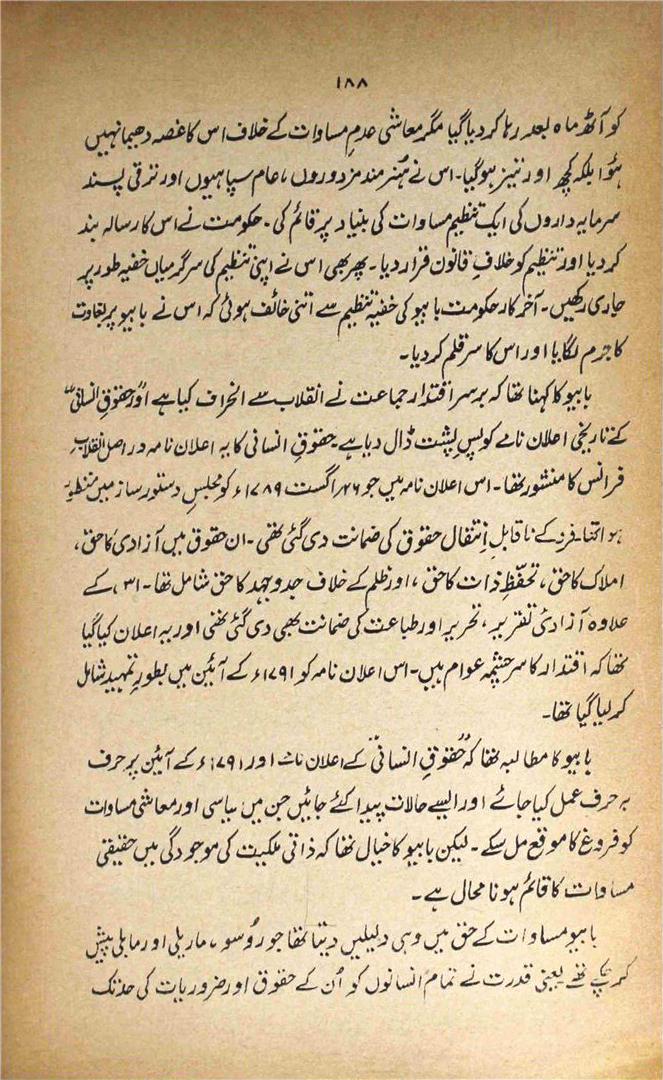 ۱۸۸
کو آٹھ ماہ بعد رہا کر دیا گیا مگر معاشی عدم مساوات کے خلاف اس کا غصہ دھیما نہیں
ہوا بلکہ کچھ اور تیز ہو گیا۔ اس نے ہنر مند مزدوروں، عام سپاہیوں اور ترقی پسند
سرمایہ داروں کی ایک تنظیم مساوات کی بنیاد پر قائم کی۔ حکومت نے اس کا رسالہ بند
کر دیا اور تنظیم کو خلافِ قانون قرار دیا۔ پھر بھی اس نے اپنی تنظیم کی سرگرمیاں خفیہ طور پر
جاری رکھیں۔ آخر کار حکومت بابیو کی خفیہ تنظیم سے اتنی خائف ہوئی کہ اس نے بابیو پر بغاوت
کا جرم لگایا اور اس کا سر قلم کر دیا۔
بابیو کا کہنا تھا کہ برسرِ اقتدار جماعت نے انقلاب سے انحراف کیا ہے اور "حقوقِ انسانی"
کے تاریخی اعلان نامے کو پسِ پشت ڈال دیا ہے۔ حقوقِ انسانی کا یہ اعلان نامہ دراصل انقلابِ
فرانس کا منشور تھا۔ اس اعلان نامہ میں جو ۲۶ اگست ۱۷۸۹ء کو مجلسِ دستور ساز میں منظور
ہوا تھا۔ فرد کے ناقابلِ انتقال حقوق کی ضمانت دی گئی تھی۔ ان حقوق میں آزادی کا حق،
املاک کا حق، تحفظِ ذات کا حق، اور ظلم کے خلاف جدوجہد کا حق شامل تھا۔ اس کے
علاوہ آزادیٔ تقریر، تحریر اور طباعت کی ضمانت بھی دی گئی تھی اور یہ اعلان کیا گیا
تھا کہ اقتدار کا سرچشمہ عوام ہیں۔ اس اعلان نامہ کو ۱۷۹۱ء کے آئین میں بطورِ تمہید شامل
کر لیا گیا تھا۔
بابیو کا مطالبہ تھا کہ "حقوقِ انسانی" کے اعلان نامے اور ۱۷۹۱ء کے آئین پر حرف
بہ حرف عمل کیا جائے اور ایسے حالات پیدا کئے جائیں جن میں سیاسی اور معاشی مساوات
کو فروغ کا موقع مل سکے۔ لیکن بابیو کا خیال تھا کہ ذاتی ملکیت کی موجودگی میں حقیقی
مساوات کا قائم ہونا محال ہے۔
بابیو مساوات کے حق میں وہی دلیلیں دیتا تھا جو روسو، ماریلی اور مابلی پیش
کر چکے تھے یعنی قدرت نے تمام انسانوں کو اُن کے حقوق اور ضروریات کی حد تک